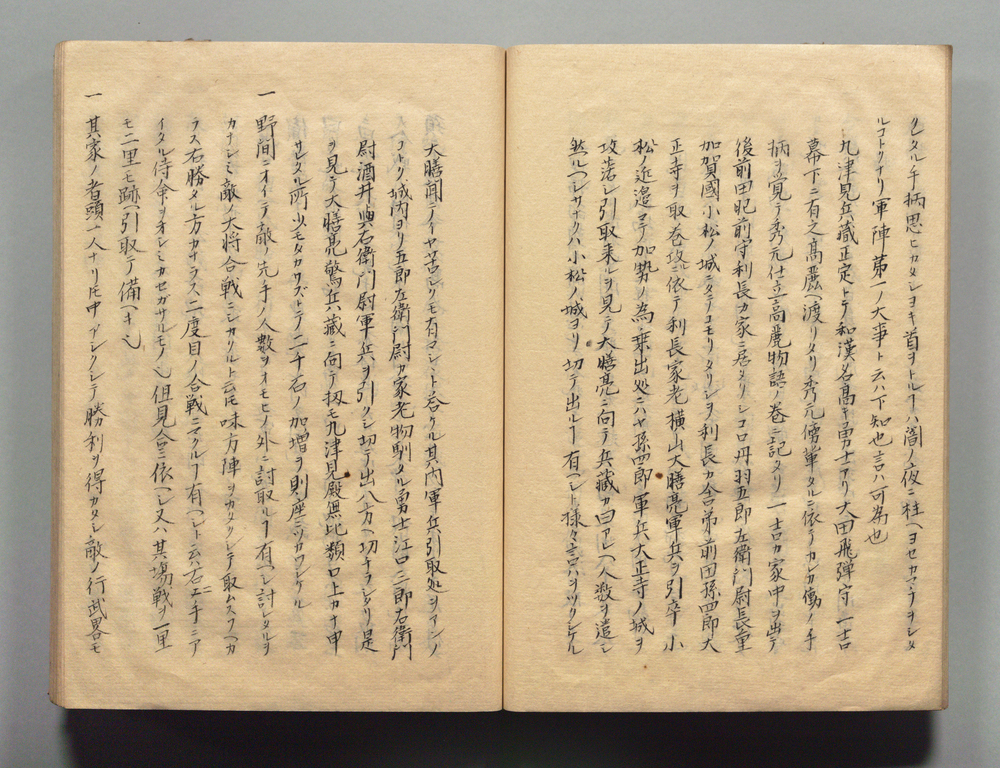 クレタル手柄思ヒカケシヨキ首ヲトルハ闇ノ夜ニ柱ヘヨセカマヲヲシメ
ルコトクナリ軍陣第一ノ大事ト云ハ下知也言ハ可為也
九津見兵蔵正定トテ和漢名高キ勇士アリ大田飛弾守一吉
幕下ニ有之高麗ヘ渡リタリ秀元傍輩タルニ依テカレカ働ノ手
柄ヲ覚テ秀元仕立高麗物語ノ巻ニ記タリ一吉カ家中ヲ出テ
後前田肥前守利長カ家ニ居タリシコロ丹羽五郎左衛門尉長重
加賀國小松ノ城ニタテコモリタリシヲ利長カ舎弟前田孫四郎大
正寺ヲ取巻攻ニ依テ利長家老横山大膳亮軍兵ヲ引卒小
松ノ近邉マテ加勢ノ為乗出処ニハヤ孫四郎軍兵大正寺ノ城ヲ
攻落シ引取来ルヲ見テ大膳亮ニ向テ兵蔵カ曰アレヘ人数ヲ遣シ
然ルヘシサナクハ小松ノ城ヨリ切テ出ルヿ有ヘシト様々言ハヲツクシケル
大膳聞テイヤ苦シクモ有マシト答ケル其内軍兵引取処ヲアンノ
コトク城内ヨリ五郎左衛門尉カ家老物馴タル勇士江口三郎右衛門
尉酒井與右衛門尉軍兵ヲ引クシ切テ出八方ヘ切チラシタリ是
ヲ見テ大膳亮驚兵蔵ニ向テ扨モ九津見殿無比類口上カナ申
サレタル所少モタカワズトテ二千石ノ加増ヲ則座ニツカワシケル
一 野間ニオイテ敵ノ先手ノ人数ヲオモヒノ外ニ討取ルヿ有ヘシ討シタルヲ
カナシミ敵ノ大将合戦ニシカクルト云ﾄﾓ味方陣ヲカタクシテ取ムスフヘカ
ラス右勝タル方カナラス二度目ノ合戦ニマクルヿ有ヘシト云ハ右ニ手ニア
イタル侍余ヲオシミカセガサルモノ也但見合ニ依ヘシ又ハ其場戦ヲ一里
モ二里モ跡ヘ引取テ備ヘキ也
一 其家ノ者頭一人ナリﾄﾓ中アシクシテ勝利ヲ得カタシ敵ノ行武略モ